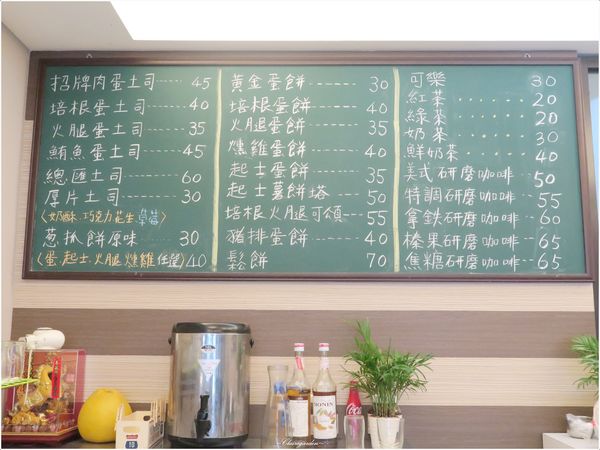 招牌肉蛋土司······45
培根蛋土司·····40
火腿蛋土司·····35
鮪魚蛋土司·····45
總匯土司·····60
厚片土司·····30
(奶酥.巧克力.花生.草莓)
葱抓餅原味····30
(蛋.起士.火腿.燻雞任選)40
黃金蛋餅-------30
培根蛋餅------40
火腿蛋餅------35
燻雞蛋餅------40
起士蛋餅------35
起士薯餅塔---50
培根火腿可頌---55
豬排蛋餅-----40
鬆餅 70
可樂 30
紅茶······20
綠茶······20
奶茶······30
鮮奶茶····40
美式研磨咖啡··50
特調研磨咖啡--55
拿鐵研磨咖啡--60
榛果研磨咖啡--65
焦糖研磨咖啡--65
MONIN